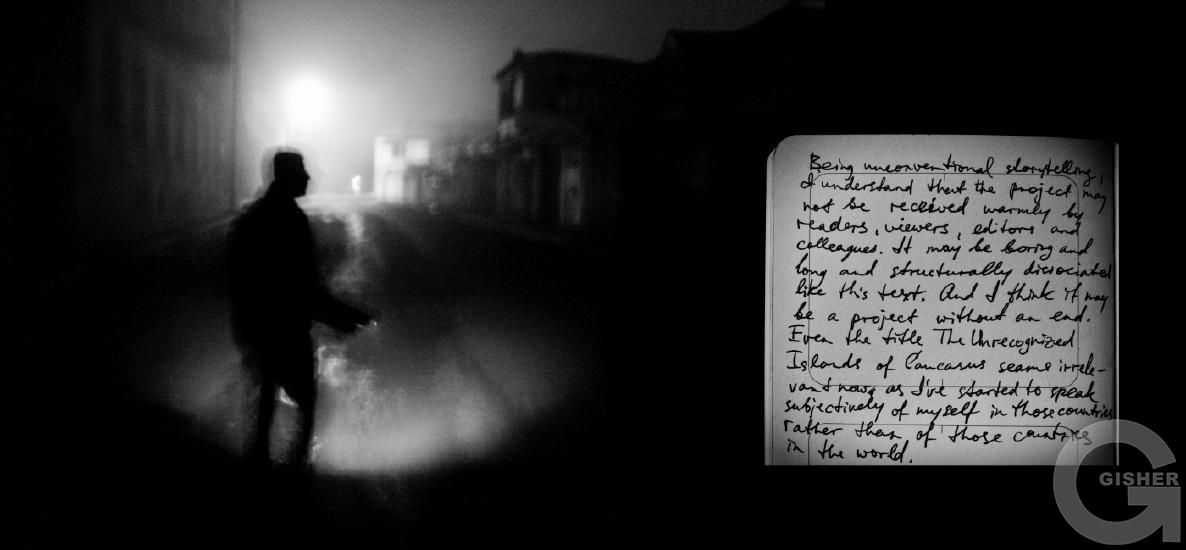 Being unconventional storytelling,
I understand that the project may
not be received warmly by
readers, viewers, editors and
colleagues. It may be boring and
long and structurally dissociated
like this text. And I think it may
be a project without an end.
Even the title The Unrecognized
Islands of Caucasus seams irrele-
vant now, as I've started to speak
subjectively of myself in those countries
rather than of those countries
in the world.
GISHER